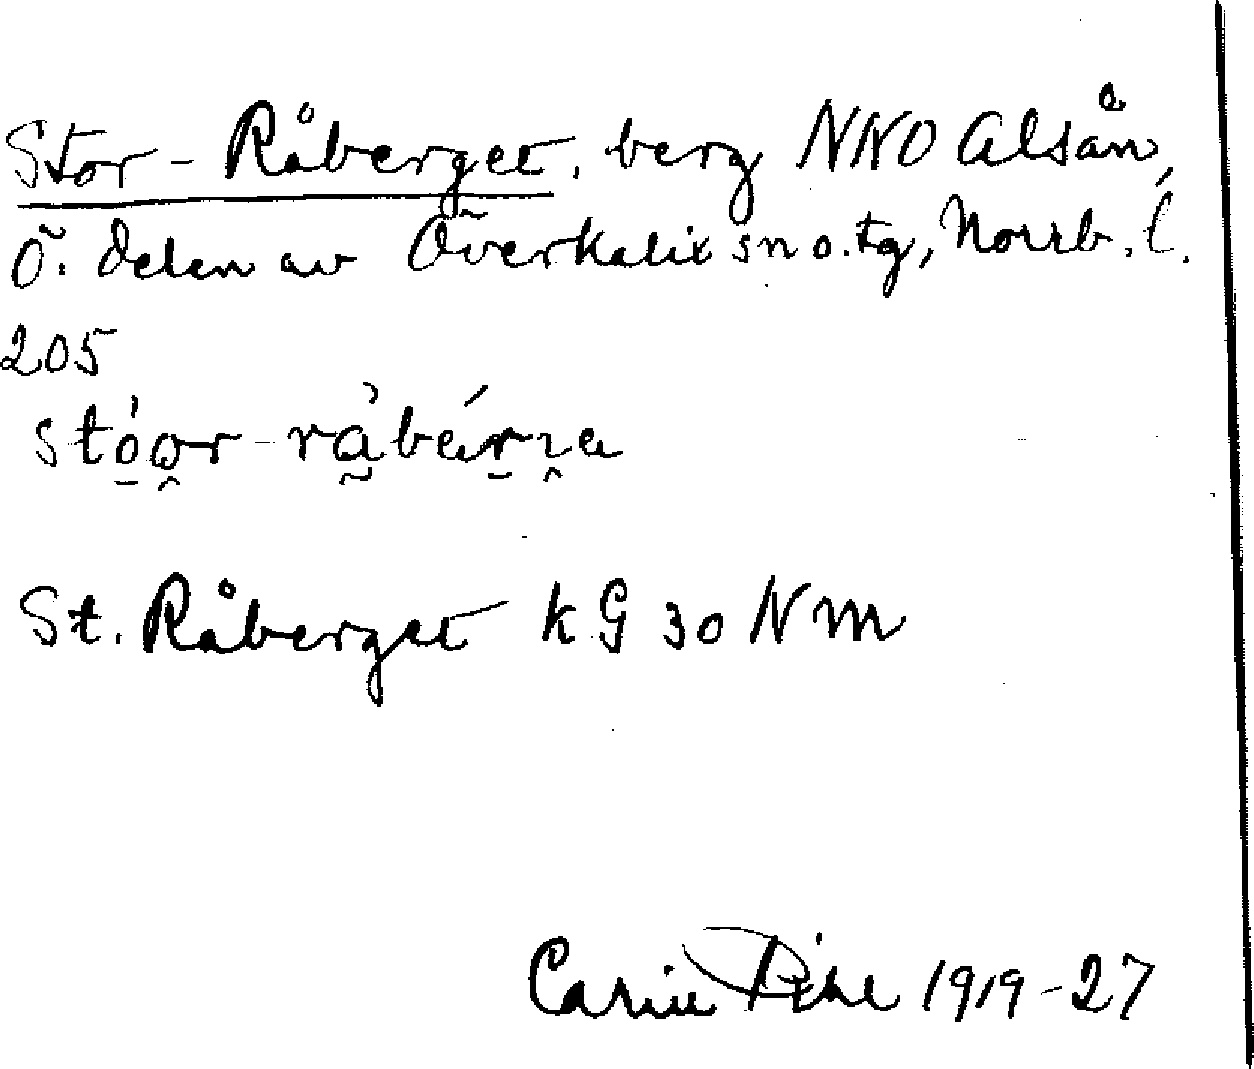 Stor-Råberget, berg NNO Alsån,
Ö. delen av Överkalix sn o. tg, Norrb. l.
205
St. Råberget kG 30 NM
Carin Pihl 1919-27